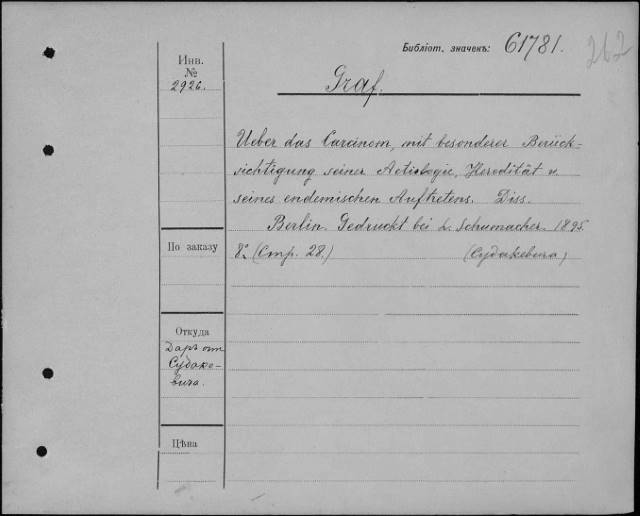 Библіот. значекъ: 61781.
262
Инв.
№
2926.
Graf.
Ueber das Carcinom, mit besonderer Berück-
sichtigung seiner Aetiologie, Heredität u.
seines endemischen Auftretens. Diss.
Berlin. Gedruckt bei L. Schumacher. 1895.
8° (Стр. 28.) (Судакевича)
По заказу
Откуда
Даръ от
Судаке-
вича.
Цѣна